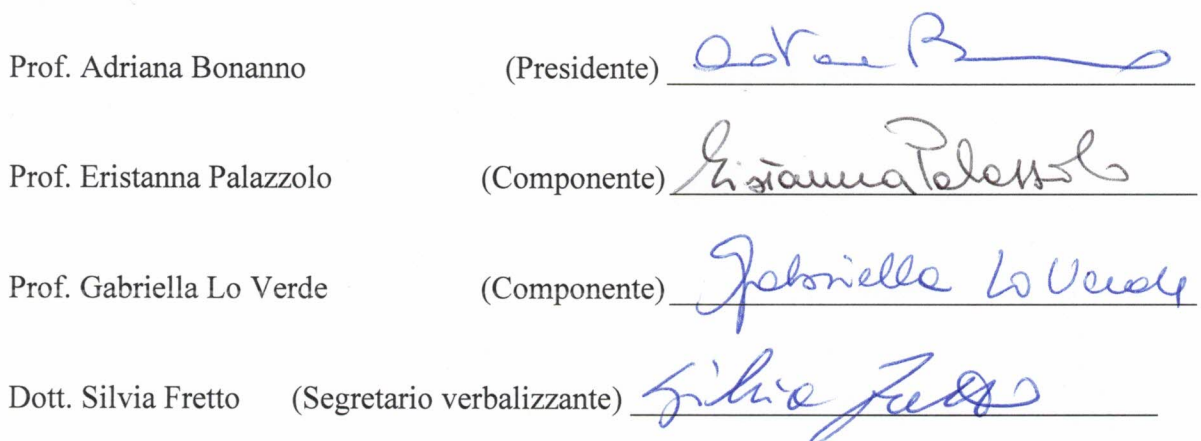 Prof. Adriana Bonanno (Presidente) Adriana B
Prof. Eristanna Palazzolo (Componente) Eristanna Palazzolo
Prof. Gabriella Lo Verde (Componente) Gabriella Lo Verde
Dott. Silvia Fretto (Segretario verbalizzante) Silvia Fretto